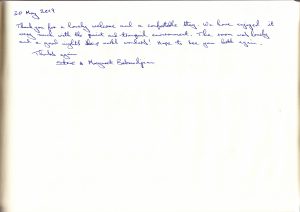 20 May 2014
Thank you for a lovely welcome and a comfortable stay. We have enjoyed it
very much with the quiet and tranquil environment. The room was lovely
and a good night's sleep works wonders! Hope to see you both again.
Thanks again
Steve & Margaret